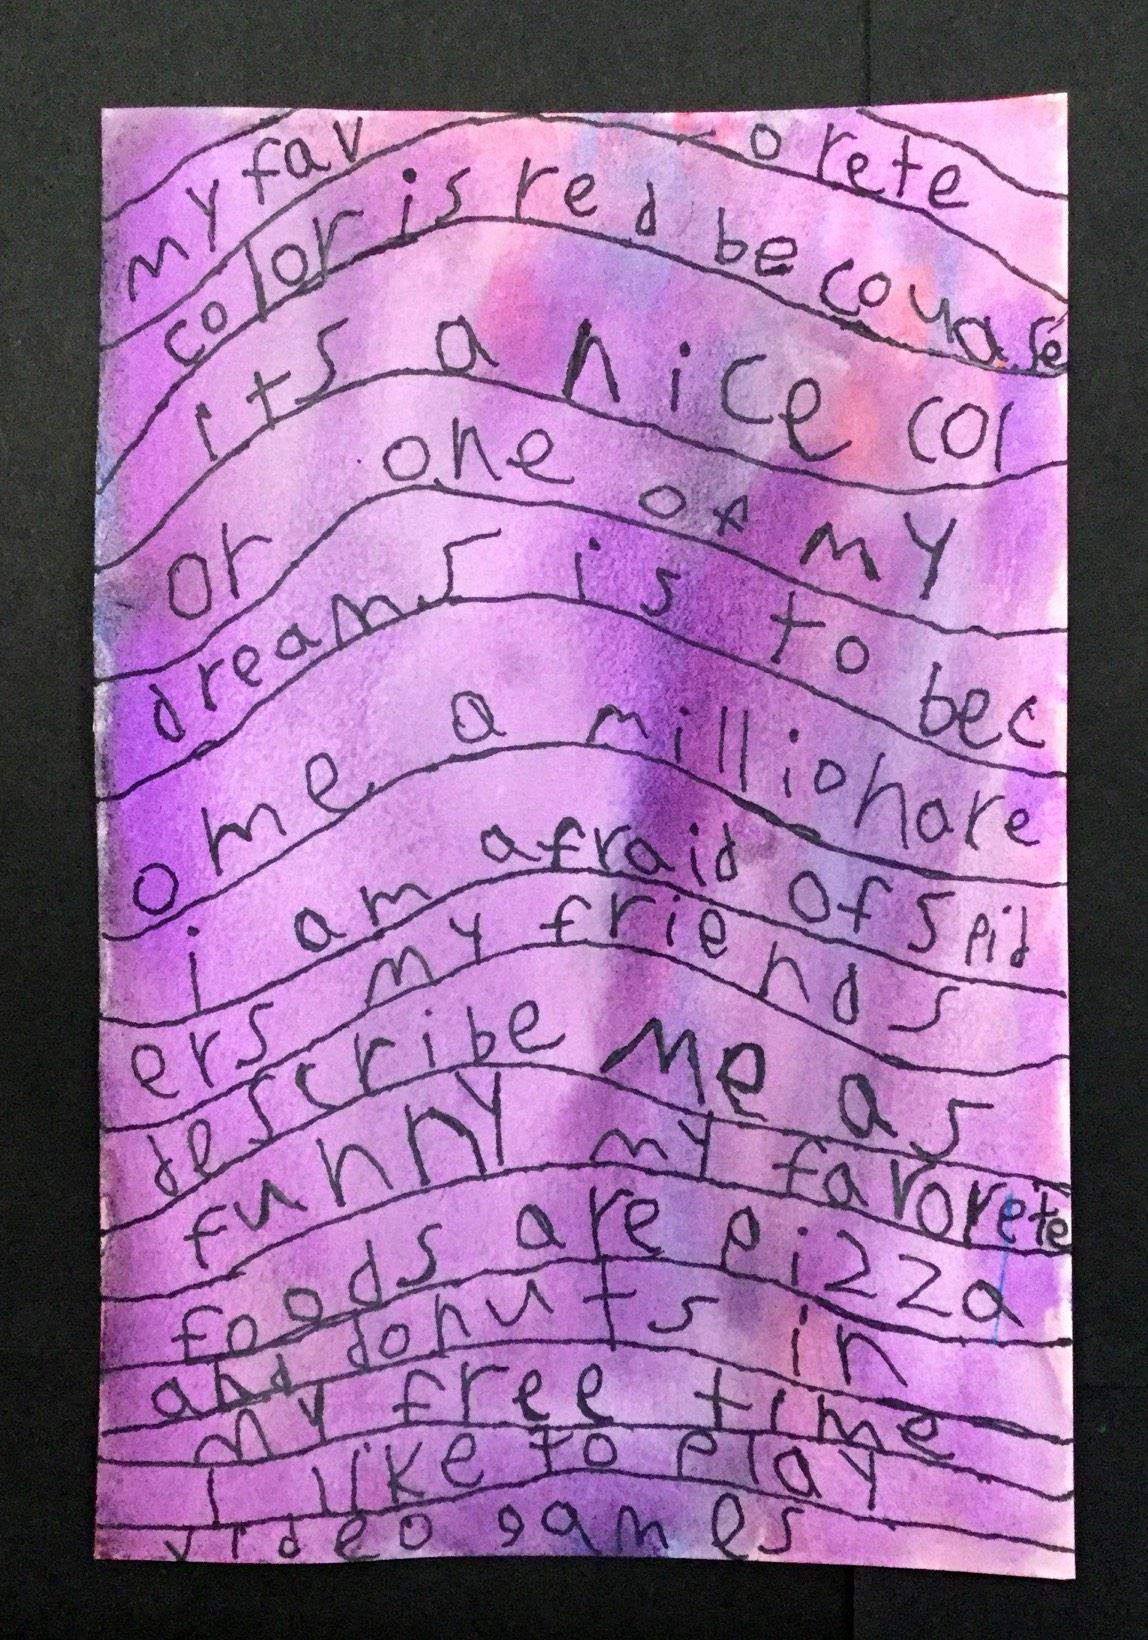 my fav orete
color is red becouase
its a nice col
or one of my
dreams is to bec
ome a millionare
i am afraid of spid
ers my friends
describe me as
funny my favorete
foods are pizza
and donuts in
my free time
I like to play
video games